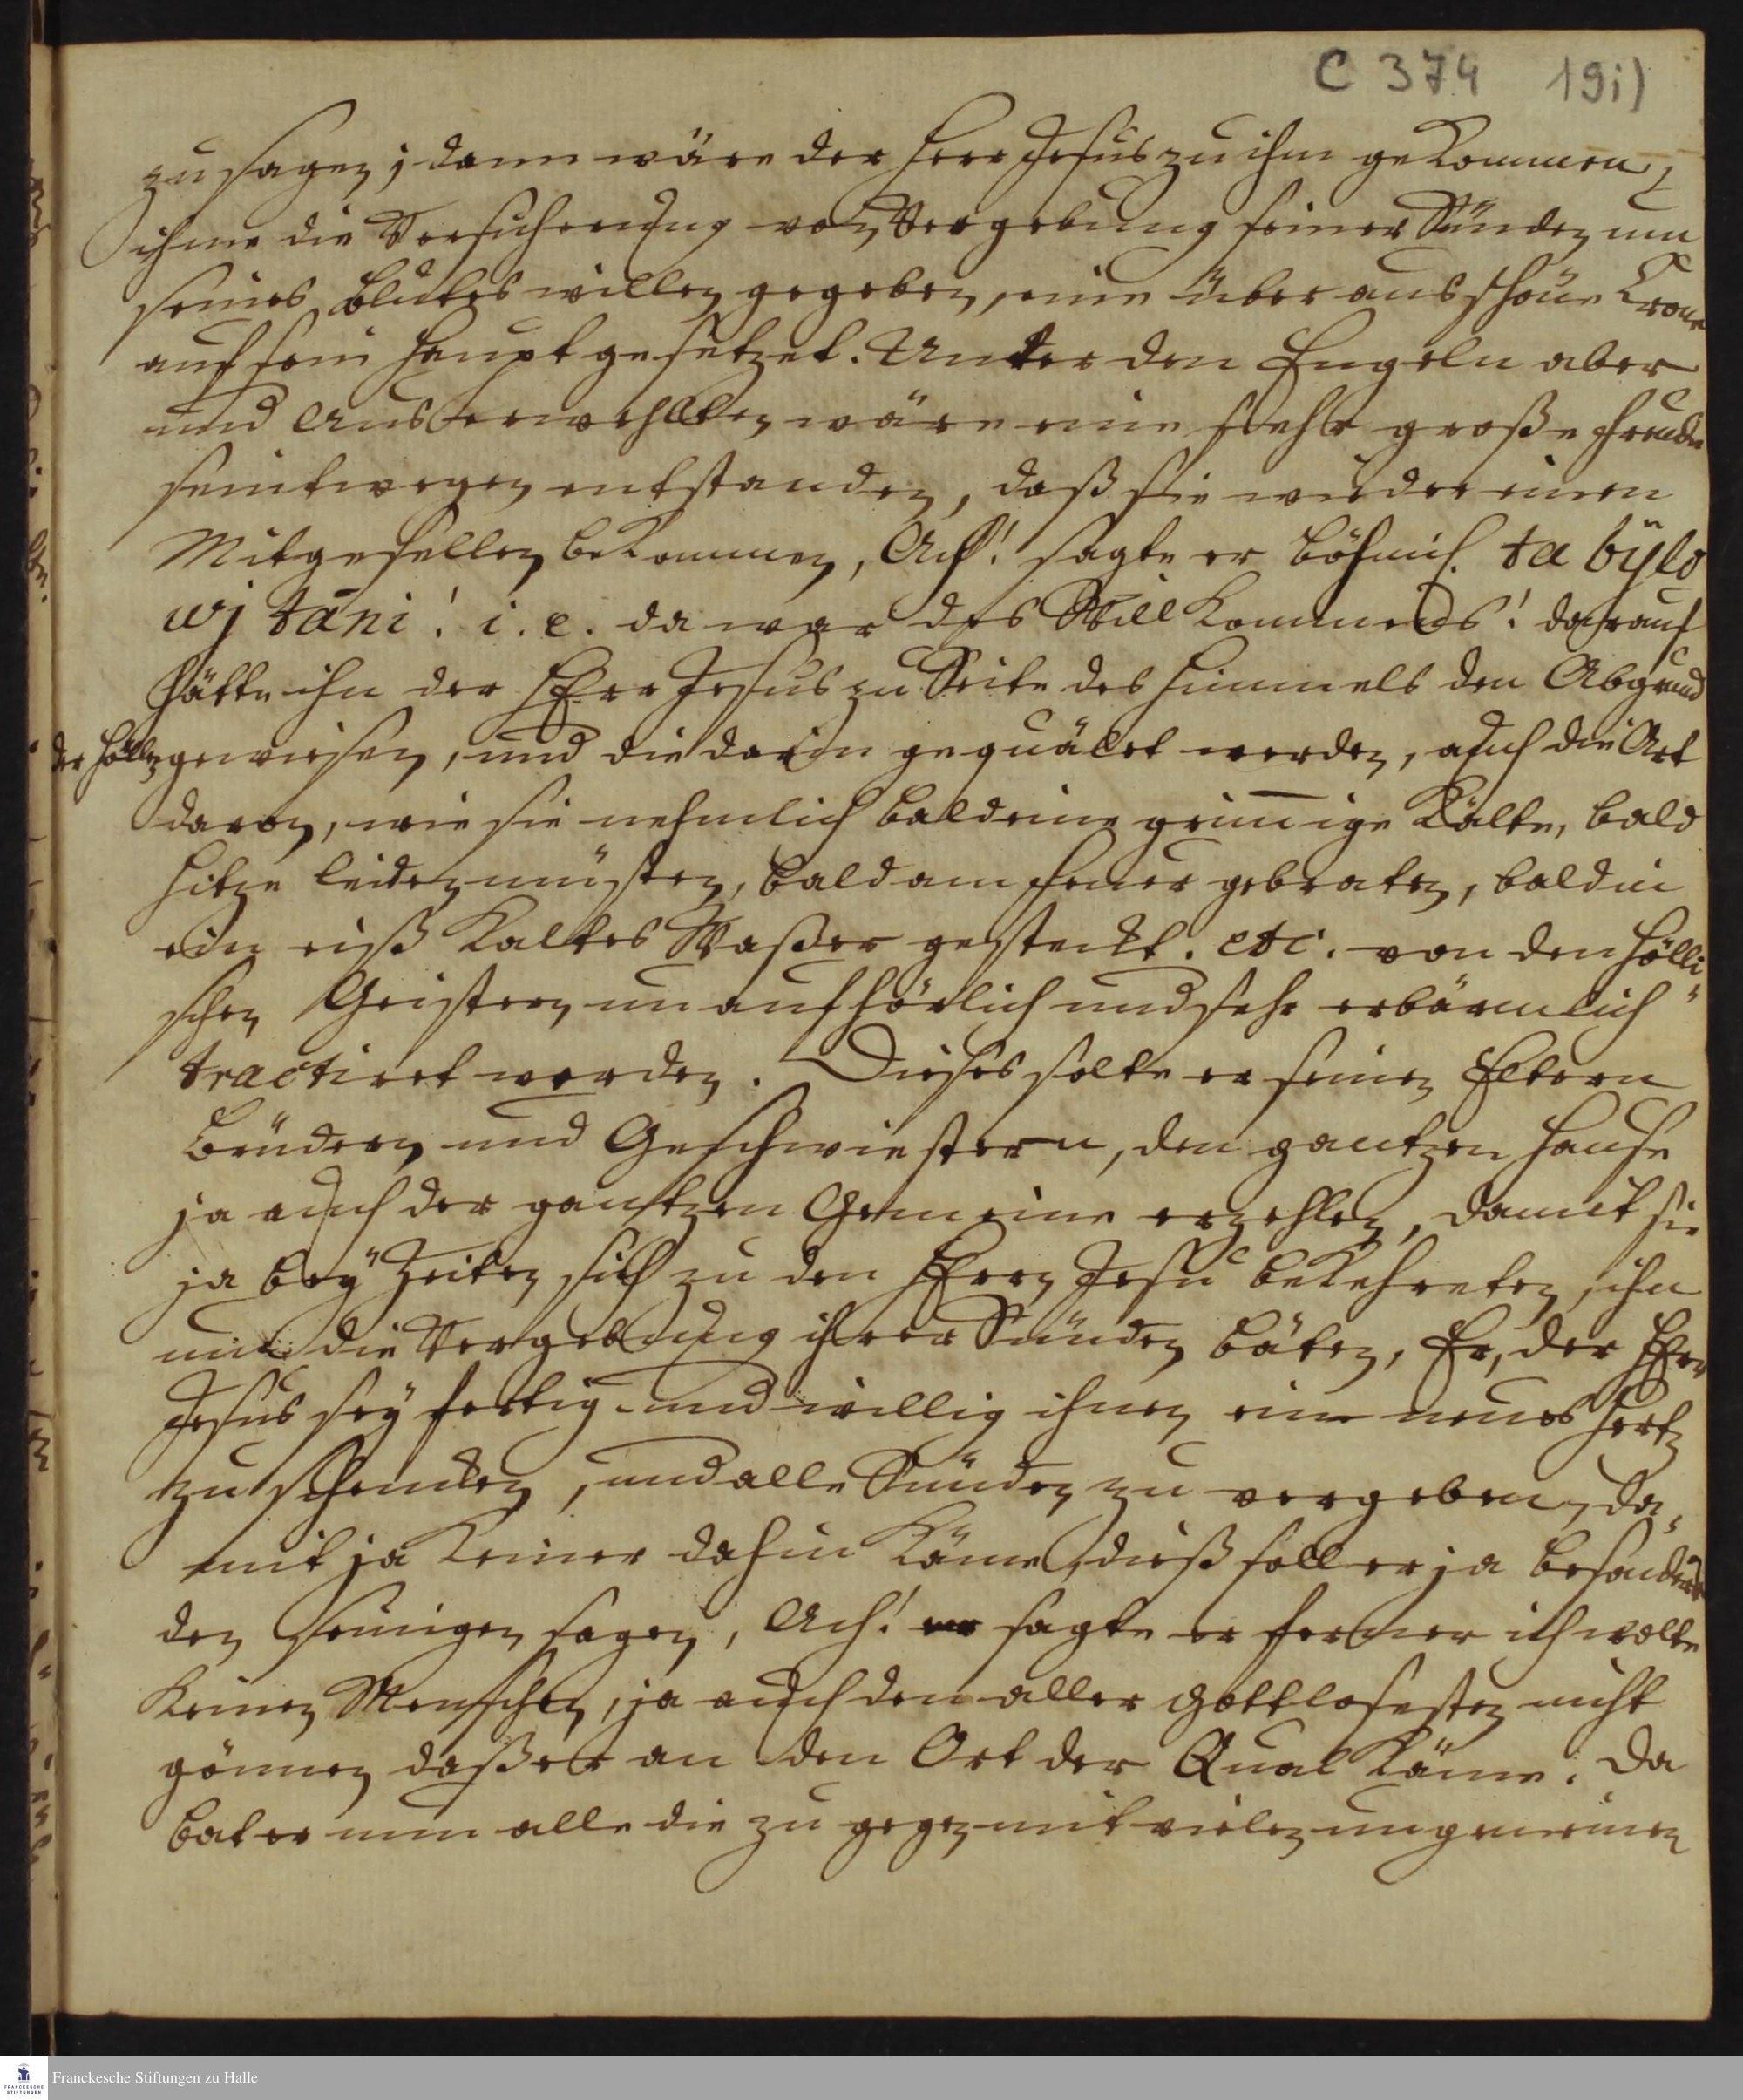 C 374 19i)
zu sagen; dann wäre der Herr Jesus zu ihm gekommen,
ihme die Versicherung von Vergebung seiner Sünden um
seines Blutes willen gegeben, eine überaus schöne Crone
auf sein Haupt gesetzet. Unter den Engeln aber
und Auserwehlten wäre eine sehr große Freude
seinetwegen entstanden, daß sie wieder einen
Mitgesellen bekommen, Ach! sagte er böhmisch. ta bÿlo
wj tani! i. e. da war des Willkommens! darauf
hätte ihn der HErr Jesus zu Seite des Himmels den Abgrund
der Höllen gewiesen, und die darin gequälet werden, auch die Art
davon, wie sie nehmlich bald eine grim̅ige Kälte, bald
Hitze leiden müsten, bald am Feuer gebraten, bald in
ein eiß kaltes Waßer gesteckt. etc. von den Hölli-
schen Geistern unaufhörlich und sehr erbärmlich
tractiret werden. Dieses solte er seinen Eltern
Brüdern und Geschwiestern, den gantzen Hause
ja auch der gantzen Gemeine erzehlen, damit sie
ja beÿ Zeiten sich zu den HErrn Jesu bekehreten, ihn
um die Vergebung ihrer Sünden bäten, Er, der HErr
Jesus seÿ fertig und willig ihnen ein neues Hertz
zu schencken, und alle Sünden zu vergeben, da-
mit ja keiner dahin käme, dieß soll er ja besonders
den seinigen sagen, Ach! sagte er ferner ich wolte
keinen Menschen, ja auch den aller gottlosesten nicht
gönnen daß er an den Ort der Qual käme. Da
bat er nun alle die zu gegen mit vielen ungemeinen
Franckesche Stiftungen zu Halle
FRANCKESCHE
STIFTUNGEN